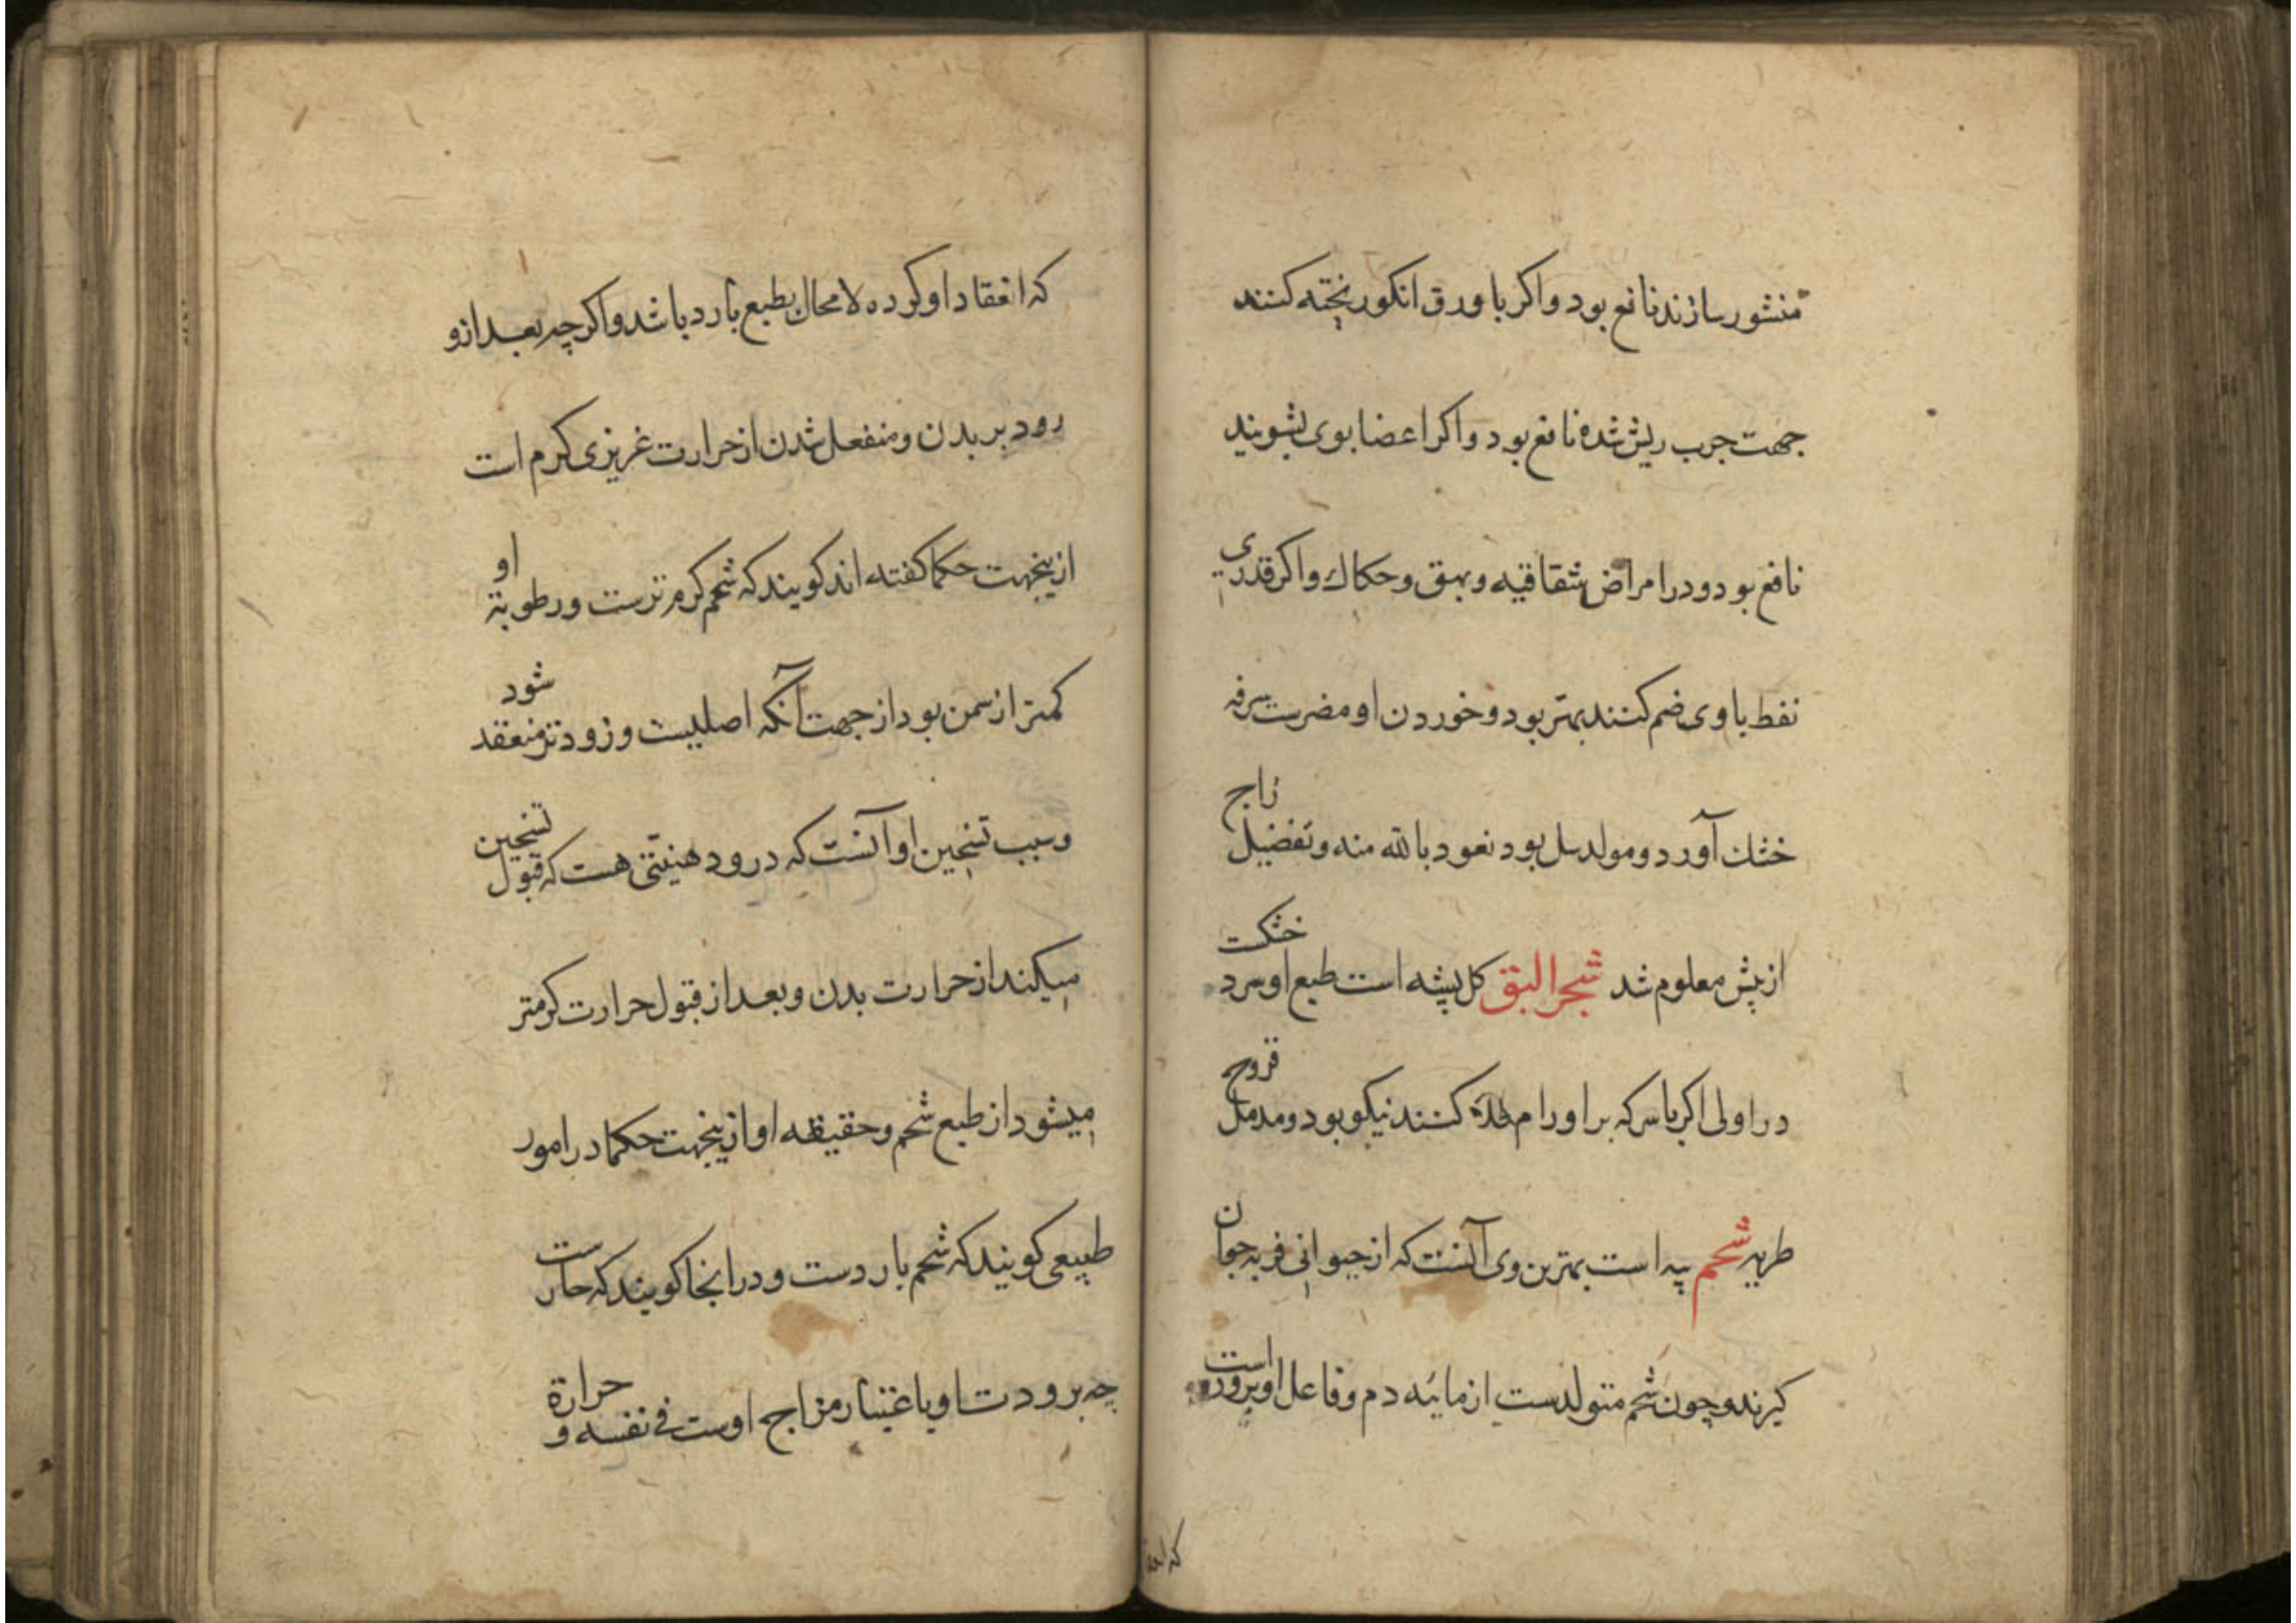 منشور سازند نافع بود و اکر با ورق انکور پخته کنند
جهت جرب ریش شده نافع بود و اکر اعضا بوی بشویند
نافع بود و در امراض شقاقیه و بهق و حکاک و اکر قدری
نفط با وی ضم کنند بهتر بود و خوردن او مضرست سرفه
خشک آورد و مولد سل بود نعود بالله منه و تفضیل زاج
از پیش معلوم شد شجر البق کل پشه است طبع او سرد خشکست
در اولی اکر باسرکه بر اورام طلا کنند نیکو بود و مدمل قروح
طریه شحم پیه است بهترین وی آنست که از حیوانی فربه جوان
کیرند و چون شحم متولدست از مائیه دم و فاعل او برودة است
که انعقا
که انعقاد او کرده لا محال بطبع بارد باشد و اکرچه بعد از و
رود بر بدن و منفعل شدن از حرارت غریزی کرم است
ازینجهت حکما کفته اند کویند که شحم کرم ترست و رطوبة او
کمتر از سمن بود از جهت آنکه اصلبیت و زودتر منعقد شود
و سبب تسخین او آنست که در ود هنیتی هست که قبول تسخین
میکند از حرارت بدن و بعد از قبول حرارت کرمتر
میشود از طبع شحم و حقیقه او ازینجهت حکما در امور
طبیعی کویند که شحم باردست و در اینجا کویند که حارست
چه برودت او باعتبار مزاج اوست فی نفسه و حرارة